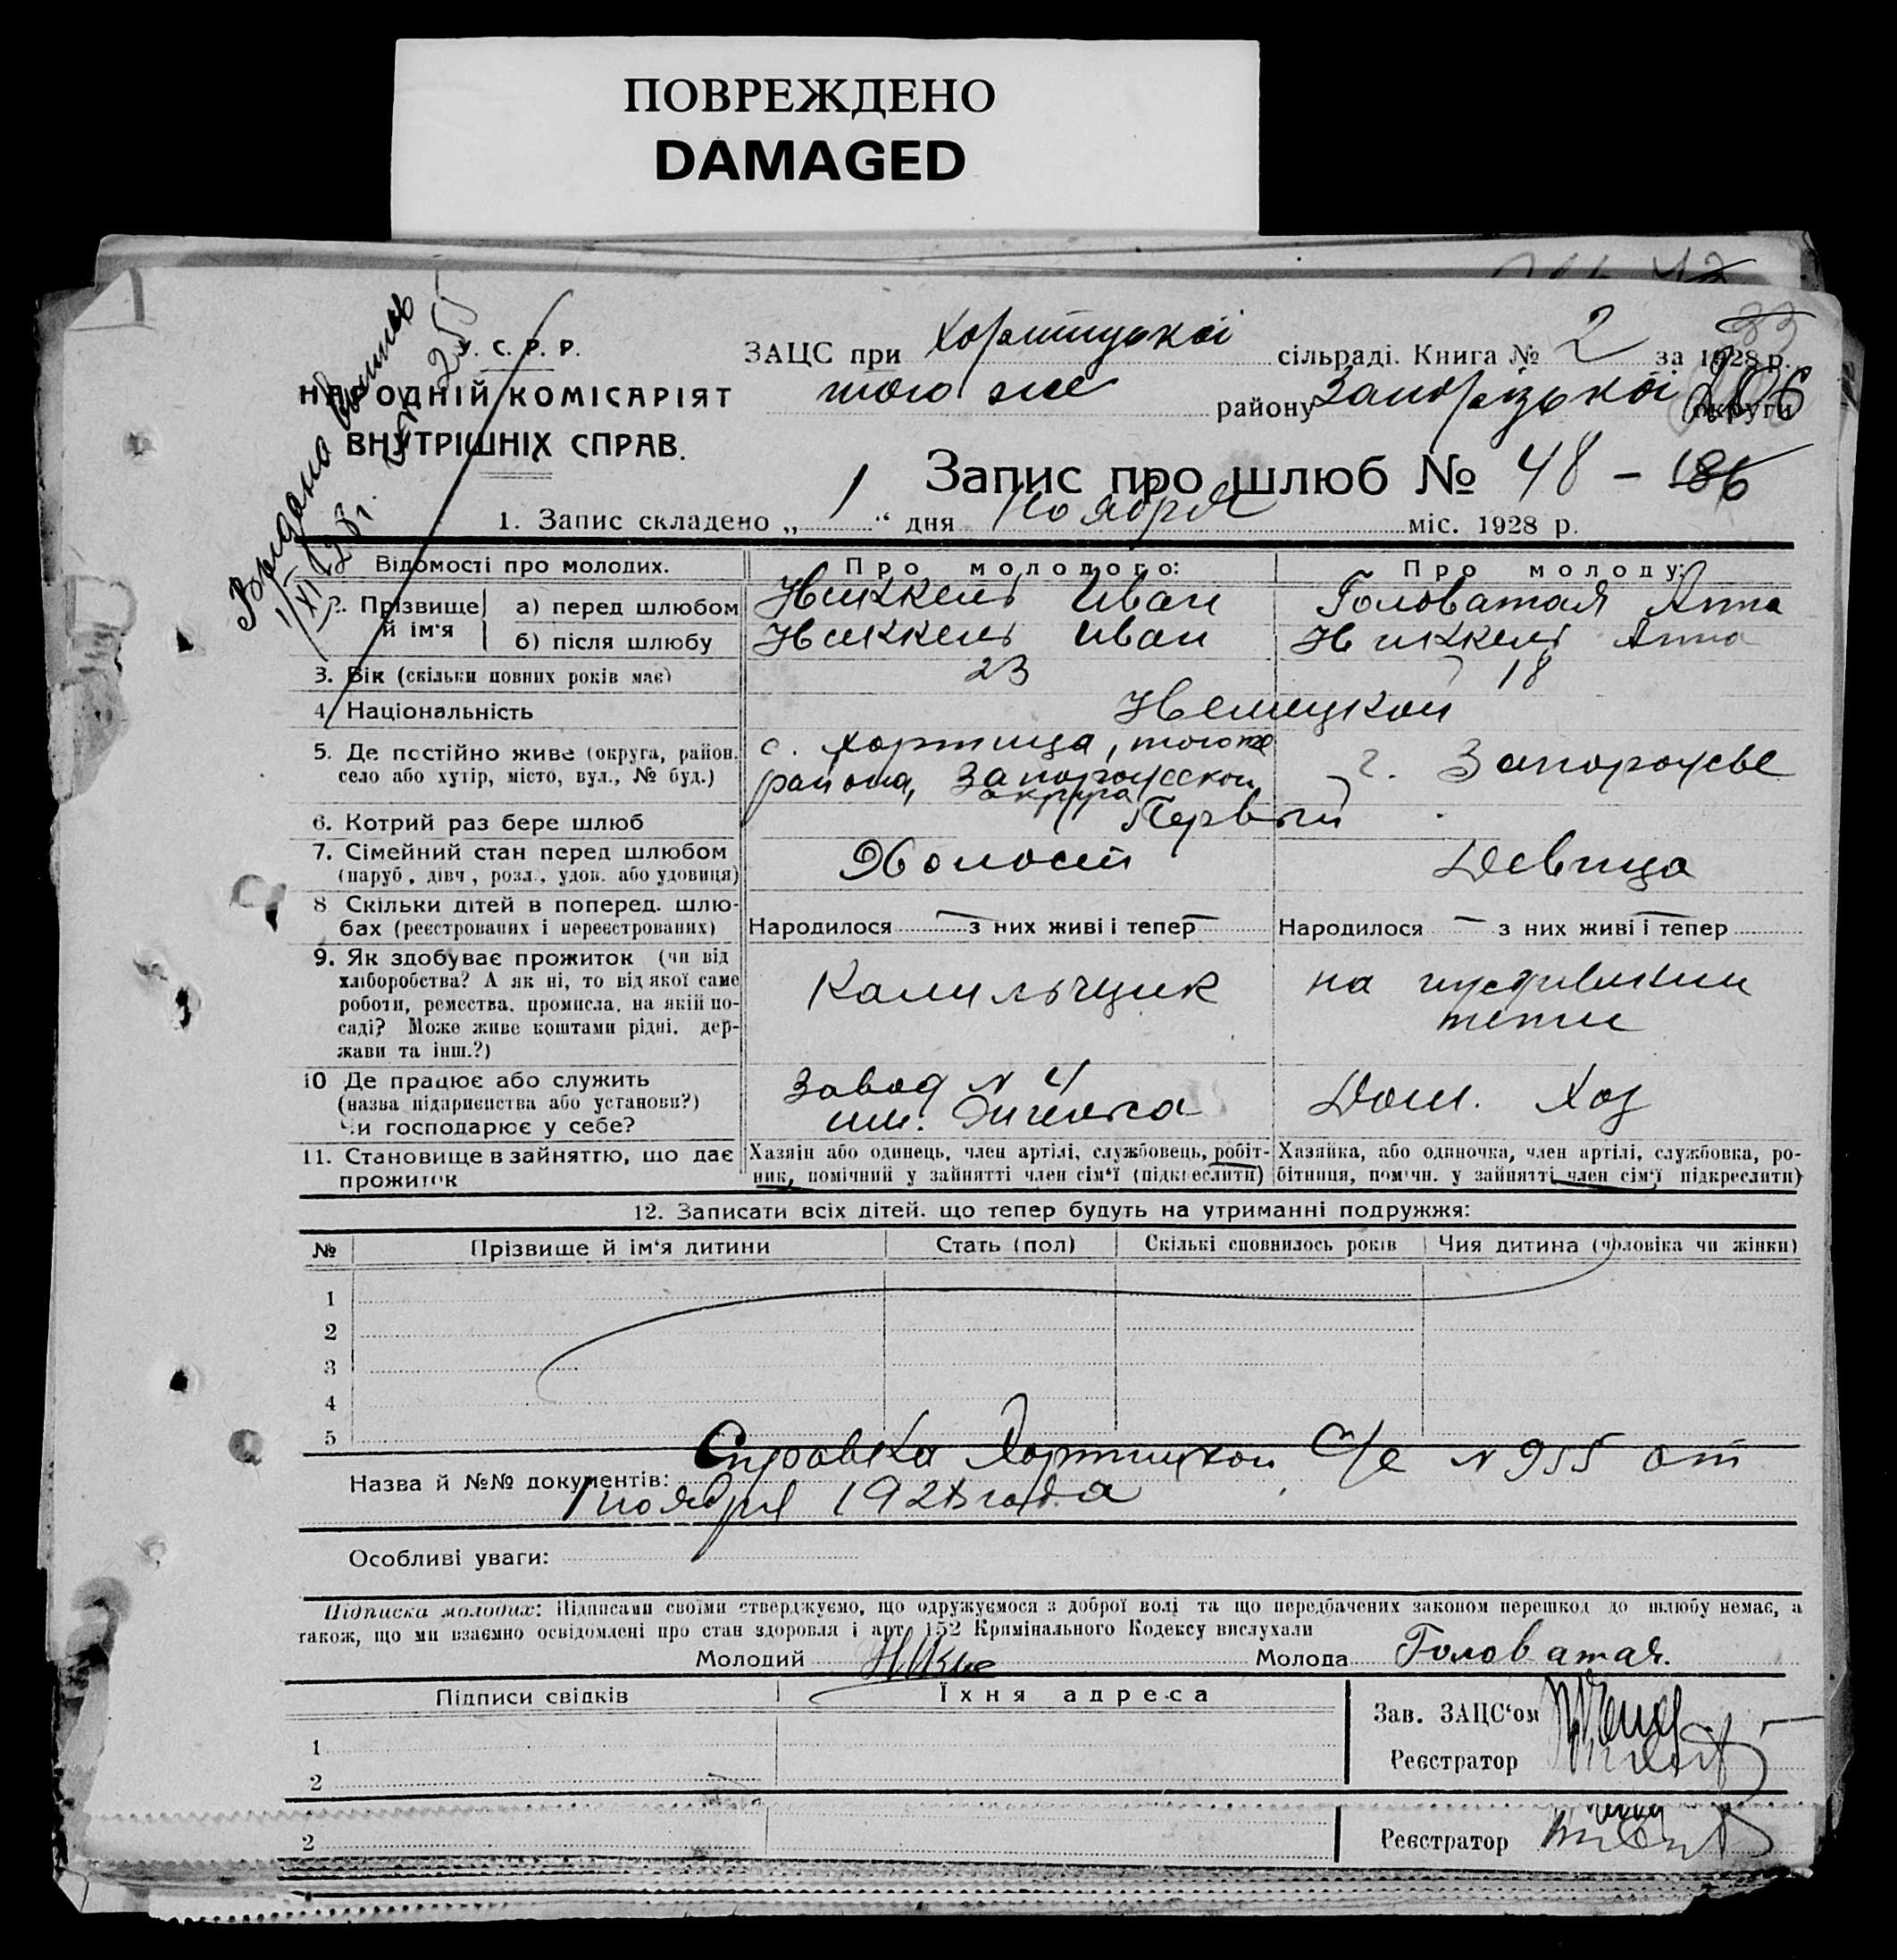 ПОВРЕЖДЕНО
DAMAGED
У. С. Р. Р.
НАРОДНІЙ КОМІСАРІЯТ
ВНУТРІШНІХ СПРАВ.
Видана выпись
1/XI 28 г. № 255
ЗАЦС при Хортицькой сільраді. Книга № 2 за 1928 р. 33
того же району Запорізької округи 206
Запис про шлюб № 48 - 186
1. Запис складено „ 1 “ дня Ноября міс. 1928 р.
Відомості про молодих. Про молодого: Про молоду:
2. Прізвище й ім'я а) перед шлюбом Никкель Иван Головатая Анна
б) після шлюбу Никкель Иван Никкель Анна
3. Вік (скільки повних років має) 23 18
4. Національність Немецкой
5. Де постійно живе (округа, район, с. Хортица, того же г. Запорожье
село або хутір, місто, вул., № буд.) района, Запорожской
округа
6. Котрий раз бере шлюб Первый
7. Сімейний стан перед шлюбом Холост Девица
(паруб., дівч., розл., удов. або удовиця)
8 Скільки дітей в поперед. шлю-
бах (реєстрованих і нереєстрованих) Народилося — з них живі і тепер — Народилося — з них живі і тепер —
9. Як здобуває прожиток (чи від
хліборобства? А як ні, то від якої саме Камильщик на иждивении
роботи, ремества, промисла, на якій по- тети
саді? Може живе коштами рідні, дер-
жави та інш.?)
10 Де працює або служить Завод № 4 Дом. Хоз
(назва підприємства або установи?) им. Энгельса
Чи господарює у себе?
11. Становище в зайняттю, що дає Хазяін або одинець, член артілі, службовець, робіт- Хазяйка, або одиночка, член артілі, службовка, ро-
прожиток ник, помічний у зайнятті член сім‘ї (підкреслити) бітниця, помічн. у зайнятті член сім‘ї підкреслити)
12. Записати всіх дітей, що тепер будуть на утриманні подружжя:
№ Прізвище й ім‘я дитини Стать (пол) Скількі сповнилось років Чия дитина (чоловіка чи жінки)
1
2
3
4
5
Назва й №№ документів: Справка Хортицкой С/С № 955 от
1 ноября 1928 года
Особливі уваги:
Підписка молодих: Підписами своїми стверджуємо, що одружуємося з доброї волі та що передбачених законом перешкод до шлюбу немає, а
також, що ми взаємно освідомлені про стан здоровля і арт. 152 Крямінального Кодексу вислухали
Молодий Молода Головатая.
Підписи свідків Їхня адреса
Зав. ЗАЦС‘ом
1
Реєстратор
2
2 Реєстратор